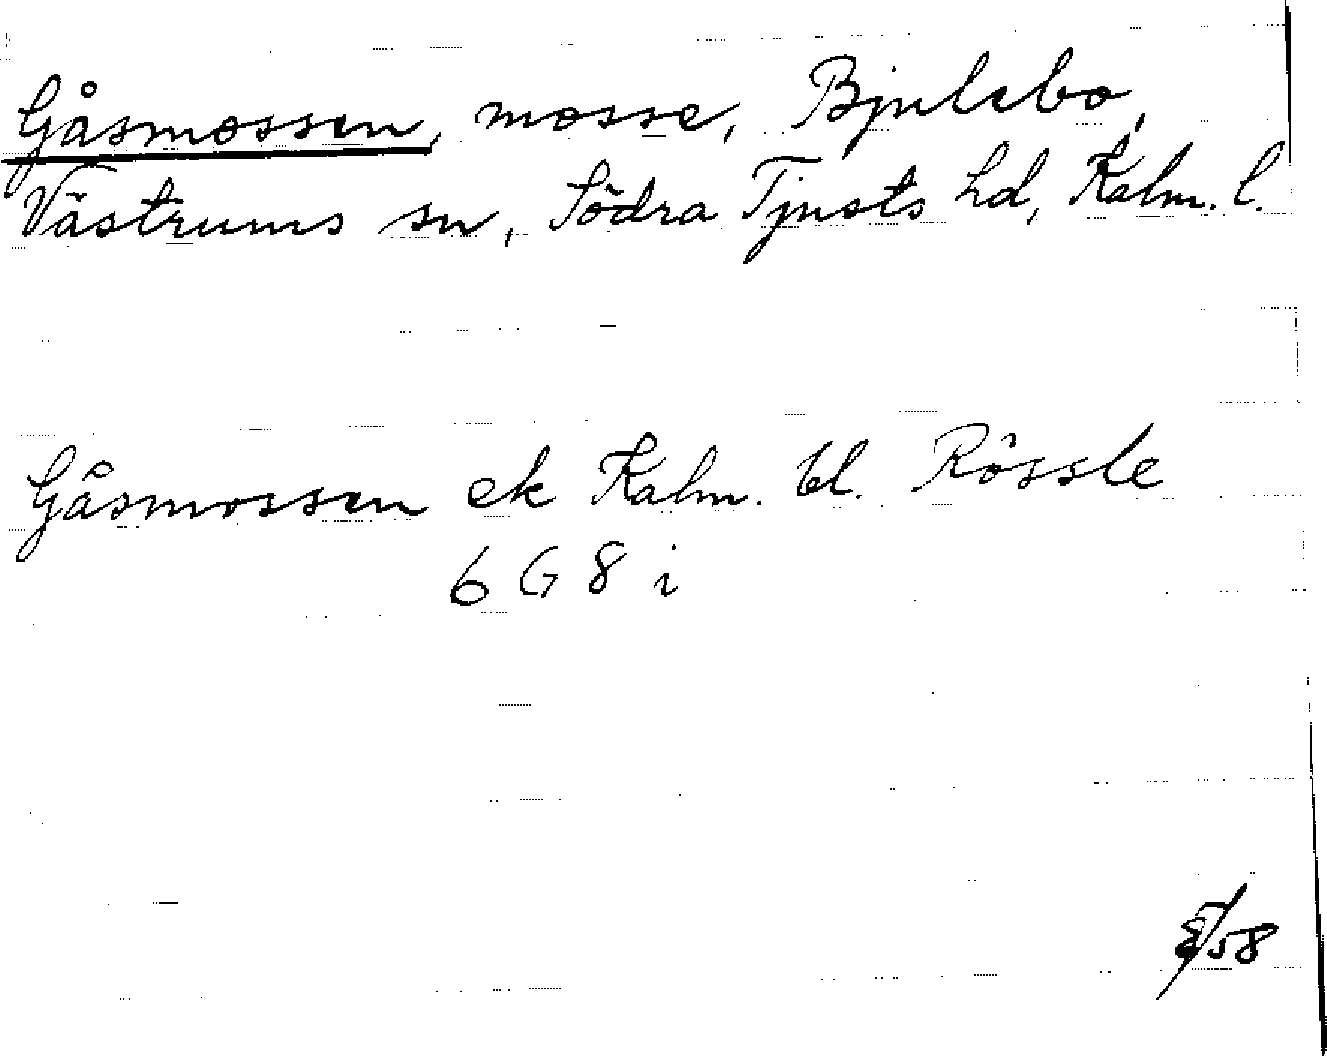 Gåsmossen, mosse, Bjulebo,
Västrums sn, Södra Tjusts hd, Kalm. l.
Gåsmossen ek Kalm. bl. Rössle
6 G 8 i